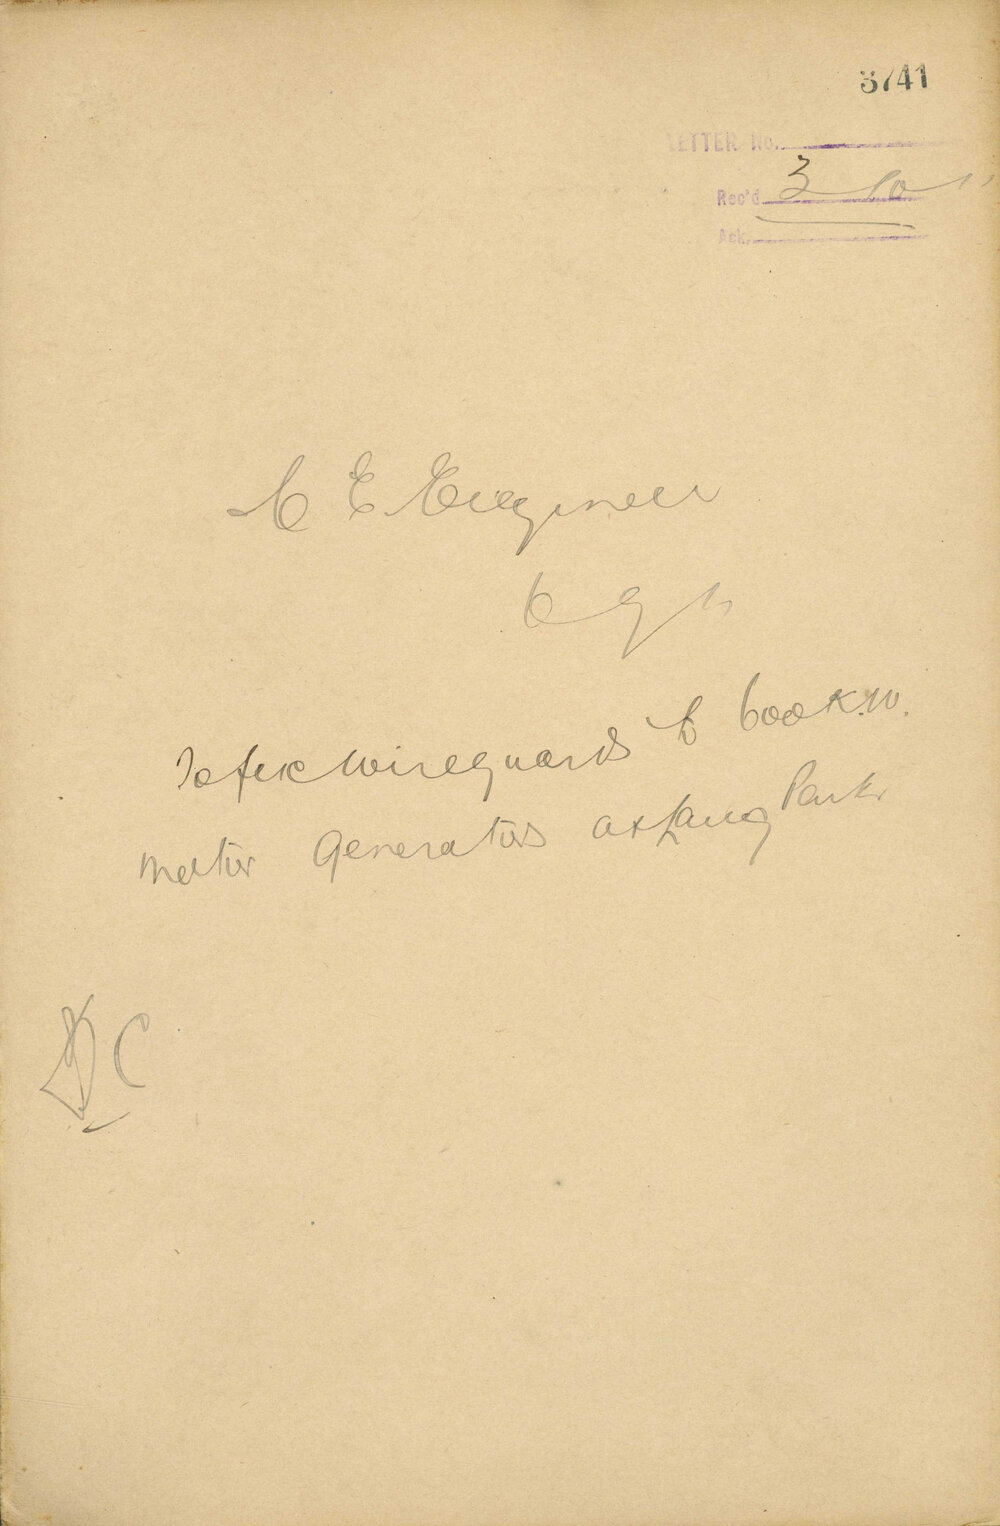 3741
LETTER No.
Rec'd 3 10 11
Ack.
C E Engineer
To fix wireguards to 600 K.W.
Motor Generators at Lang Park